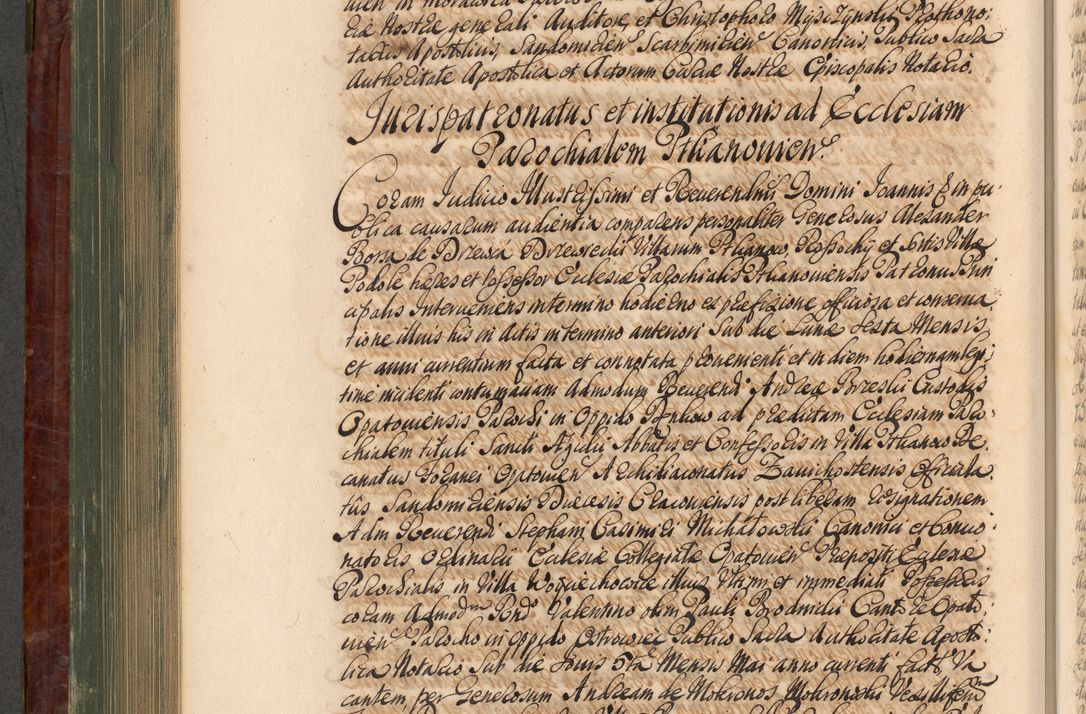 ciæ Nostræ generali Auditore et Christophoro Myszynski Prothono:
tario Apostolicis, Sandomirien Scarbimirien Canonicis, Publico Sacra
Authoritate Apostolica et Actorum Curiæ Nostræ Episcopalis Notario.
Jurispatronatus et institutionis ad Ecclesiam
Parochialem Ptkanouien.
Coram Judicio Illustrissimi et Reuerendmi Domini Joannis E in pu
blica causarum audientia comparens personaliter Generosus Alexander
de villarum Ptkanow, Rossochy et sortis Villæ
Podole hæres et possessor Ecclesiæ Parochialis Ptkanouiensis Patronus Prin
cipalis Interueniens in termino hodierno ex præfixione officiosa et conserua
tione illius his in Actis in termino anteriori Sub die Lunæ sexta Mensis
et anni currentium facta et connotata prouenienti et in diem hodiernam legi
time incidenti contumaciam Admodum Reuerendi Andreæ Custodis
Opatouiensis Parochi in Oppido ad prædictam Ecclesiam Paro:
chialem tituli Sancti Ægidii Abbatis et Confessoris in Villa Ptkanow De
canatus Foranei Opatouien Archidiaconatus Zauichostensis Officiala
tûs Sandomiriensis Diæcesis Cracouiensis post liberam resignationem
Adm Reuerendi Stephani Casimiri Michałowski Canonici et
Ecclesiæ Collegiatæ Opatouien Præpositi Ecclesiæ
Parochialis in Villa Woyciechowice illius Vltimi et immediati Possessoris
coram Admodm Rndo Valentino olim Pauli Brodnicki Cantore Opato
uien Parocho in oppido Ostrowiec Publico Sacra Authoritate Aposto:
lica Notario Sub die Jouis 5ta Mensis Maii anno currenti factã Va
cantem per Generosum Andream de Mokronos Mokronoski Vexilliferum